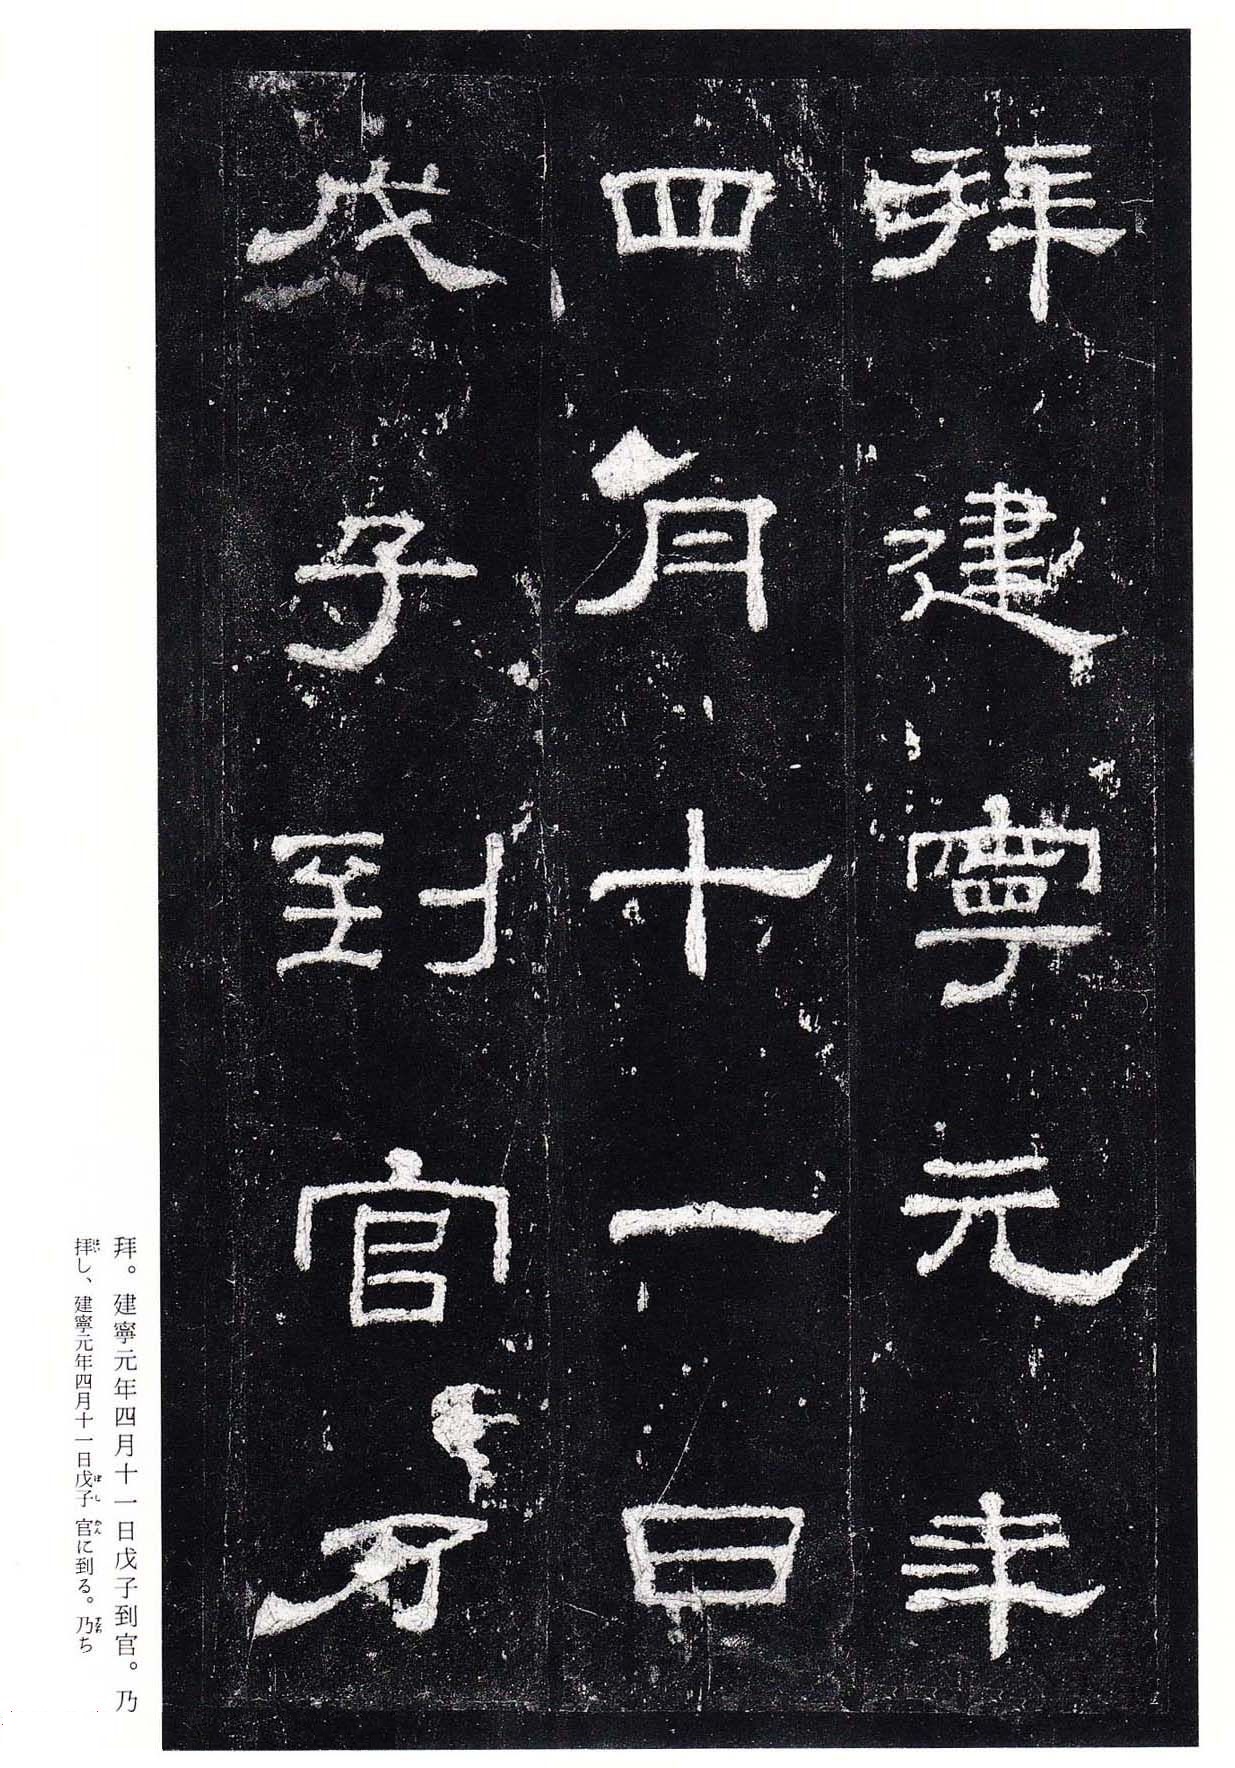 拜建寧元年
四月十一日
戊子到官乃
拜。建寧元年四月十一日戊子到官。乃
拝し、建寧元年四月十一日戊子官に到る。乃ち